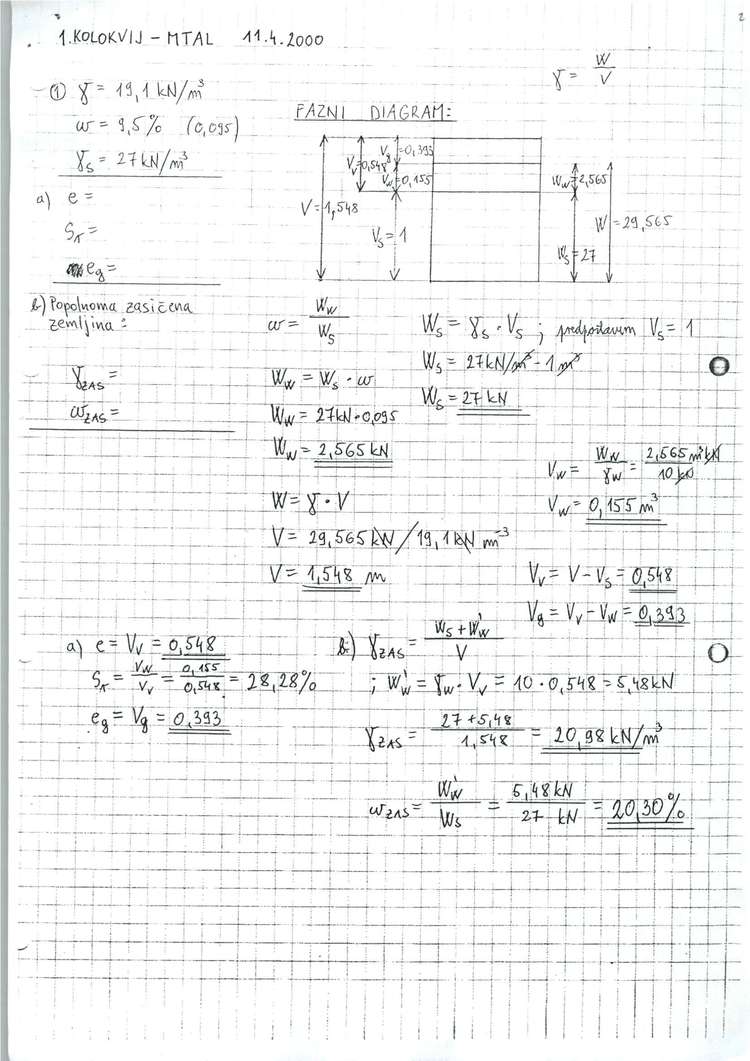 2
1. KOLOKVIJ - MTAL 11.4.2000
γ = W/V
① γ = 19,1 kN/m³
w = 9,5% (0,095)
γs = 27 kN/m³
a) e =
Sr =
eg =
FAZNI DIAGRAM:
Vg=0,393
Vv=0,548
Vw=0,155
V=1,548
Vs=1
Ww=2,565
W=29,565
Ws=27
b) Popolnoma zasičena
zemljina:
γZAS =
wZAS =
w = Ww/Ws
Ww = Ws · w
Ww = 27kN·0,095
Ww = 2,565 kN
Ws = γs · Vs ; predpostavim Vs = 1
Ws = 27kN/m³ · 1 m³
Ws = 27 kN
Vw = Ww/γw = 2,565 m³kN/10 kN
Vw = 0,155 m³
W = γ · V
V = 29,565 kN / 19,1 kN m⁻³
V = 1,548 m
Vv = V - Vs = 0,548
Vg = Vv - Vw = 0,393
a) e = Vv = 0,548
Sr = Vw/Vv = 0,155/0,548 = 28,28%
eg = Vg = 0,393
b) γZAS = Ws + W'w/V
; W'w = γw · Vv = 10 · 0,548 = 5,48kN
γZAS = 27 + 5,48/1,548 = 20,98 kN/m³
wZAS = W'w/Ws = 5,48 kN/27 kN = 20,30%